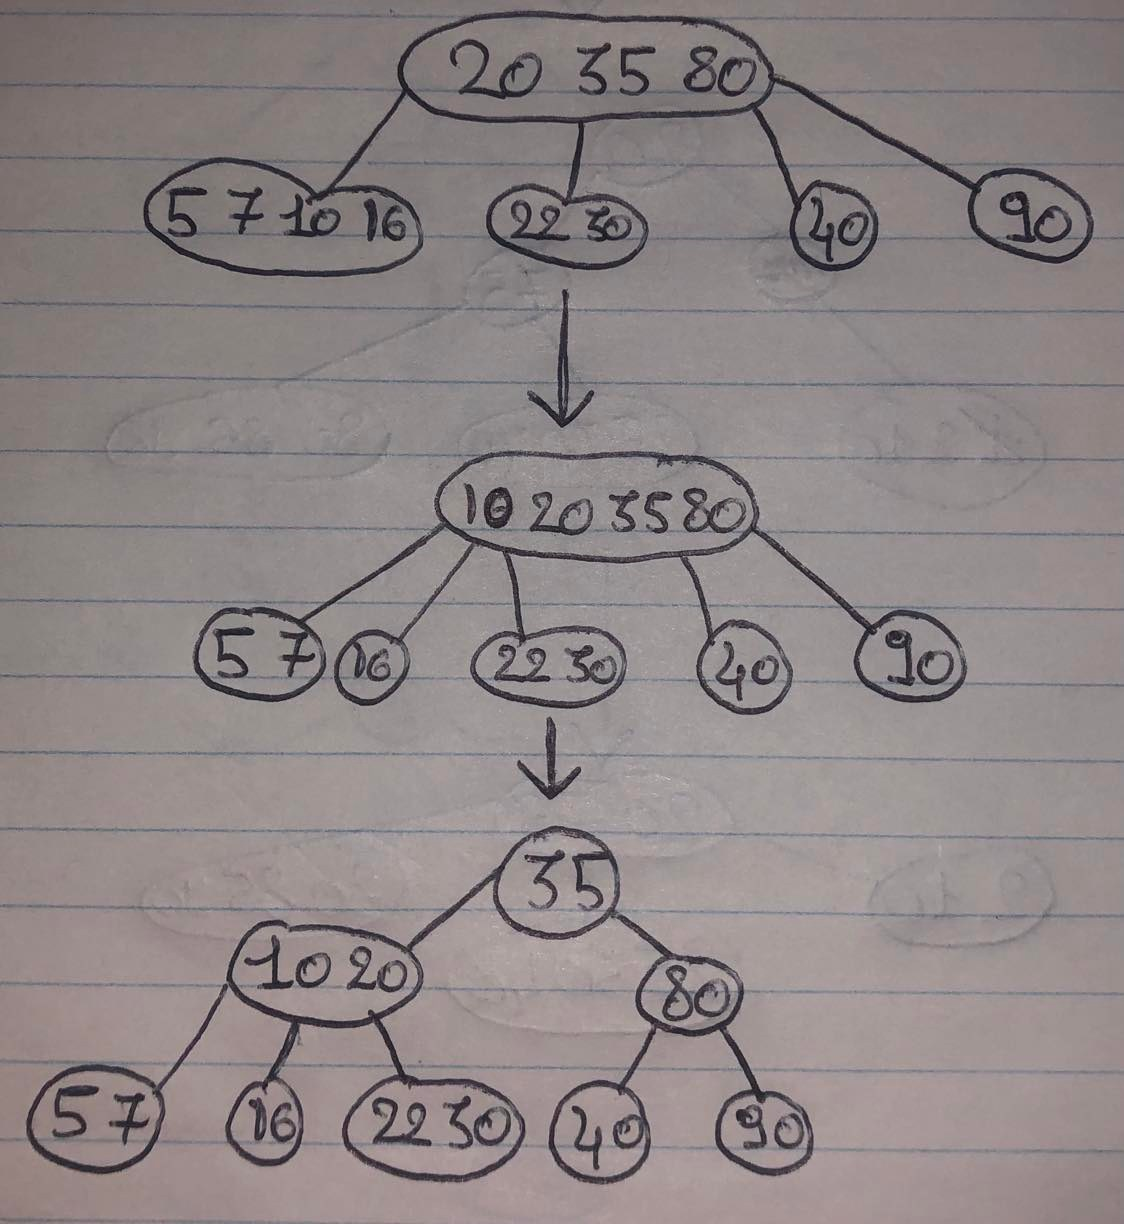 20 35 80
5 7 10 16 22 30 40 90
10 20 35 80
5 7 16 22 30 40 90
35
10 20 80
5 7 16 22 30 40 90